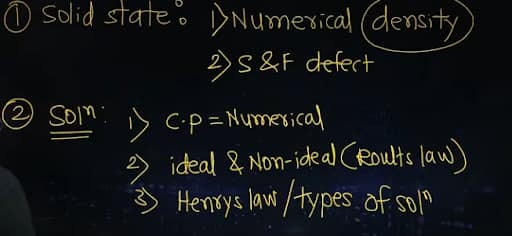 ① Solid state: 1) Numerical (density)
2) S & F defect
② Solⁿ: 1) C.P = Numerical
2) ideal & Non-ideal (Roults law)
3) Henrys law / types of solⁿ